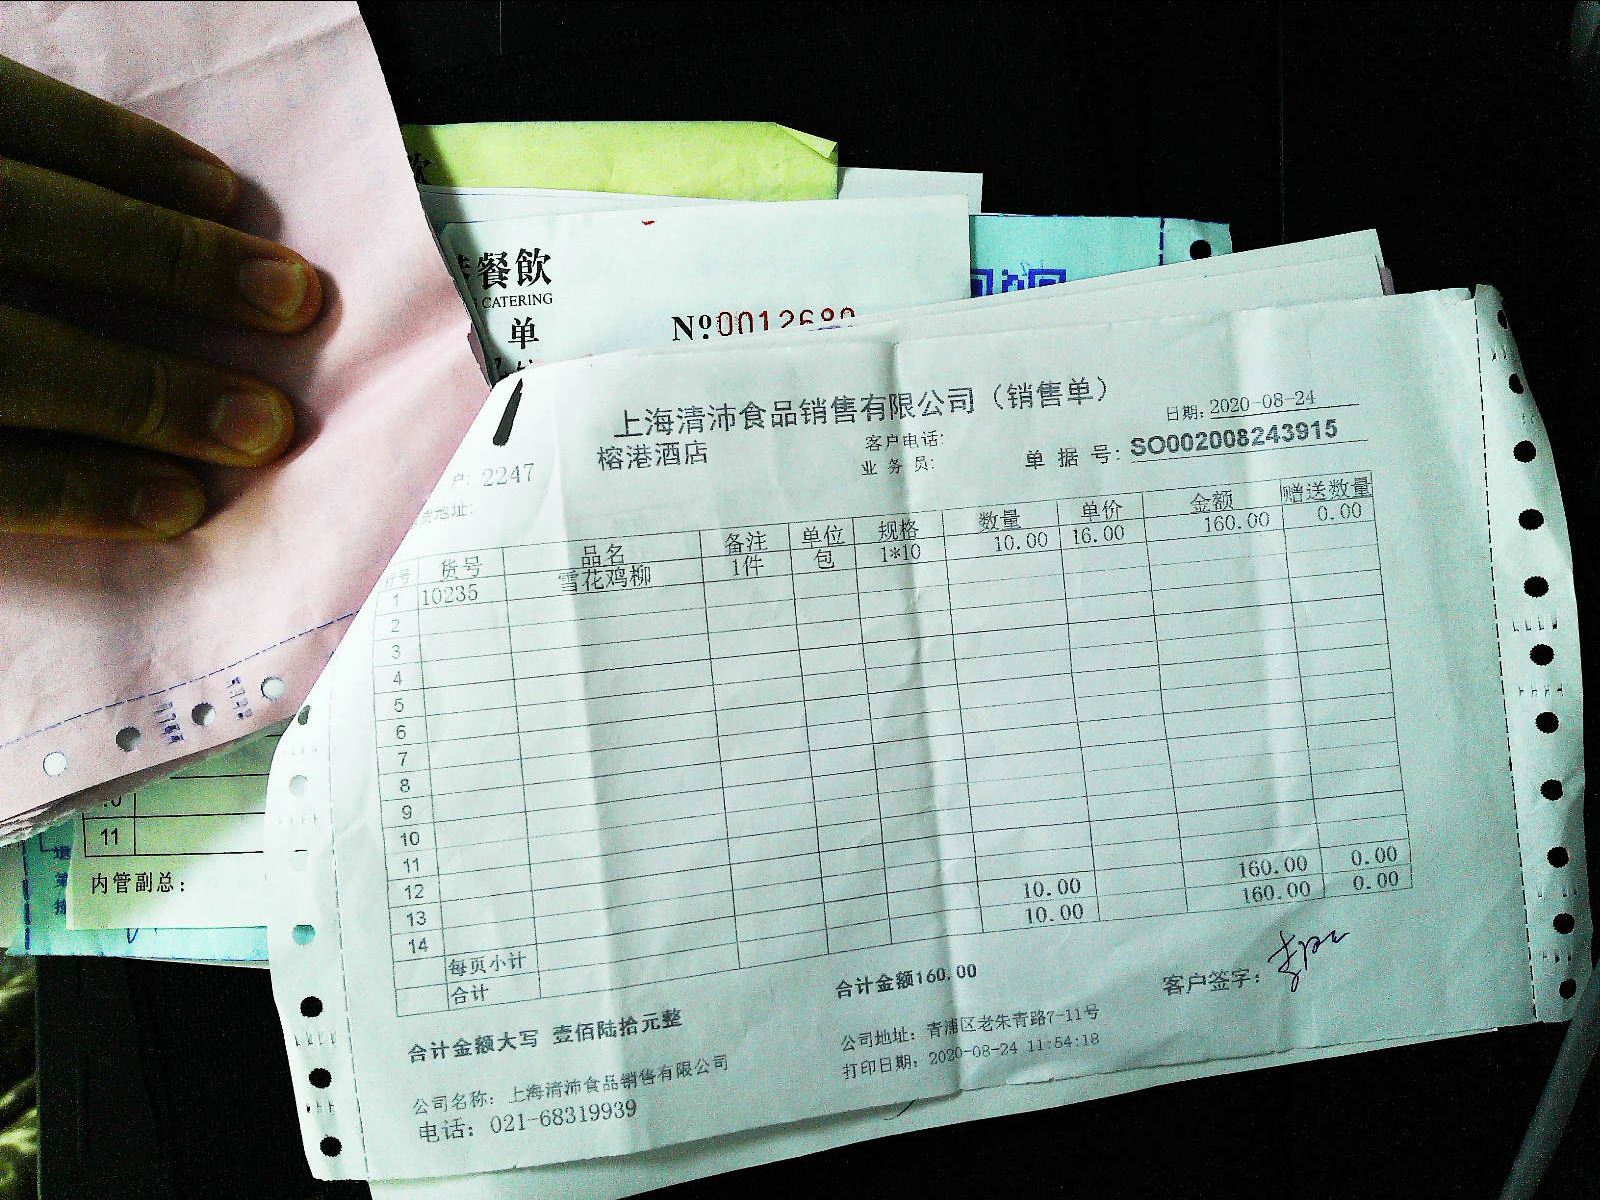 餐飲
CATERING
单
上海清沛食品销售有限公司（销售单）
日期: 2020-08-24
户: 2247
榕港酒店
客户电话:
业务员:
单据号: SO002008243915
地址:
货号 品名 备注 单位 规格 数量 单价 金额 赠送数量
1 10235 雪花鸡柳 1件 包 1*10 10.00 16.00 160.00 0.00
2
3
4
5
6
7
8
9
10
11
12
13
14
每页小计 10.00 160.00 0.00
合计 10.00 160.00 0.00
合计金额大写 壹佰陆拾元整
合计金额160.00
客户签字:
公司名称: 上海清沛食品销售有限公司
公司地址: 青浦区老朱青路7-11号
电话: 021-68319939
打印日期: 2020-08-24 11:54:18
11
内管副总: